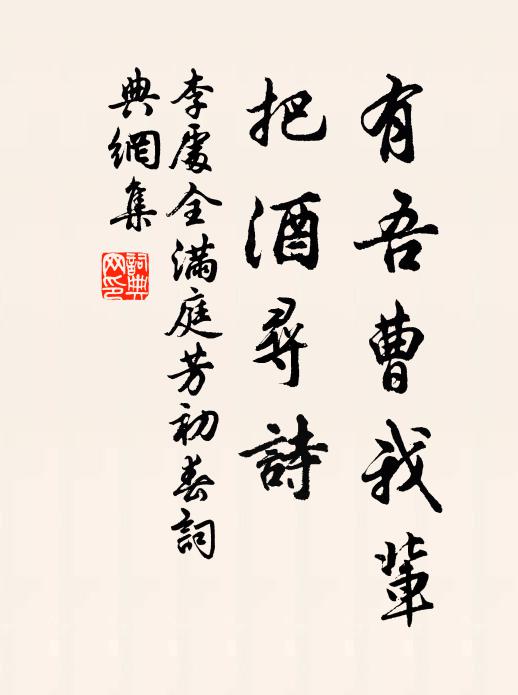 有吾曹我輩
把酒尋詩
李處全滿庭芳初春詞
典網集
詞典
网印